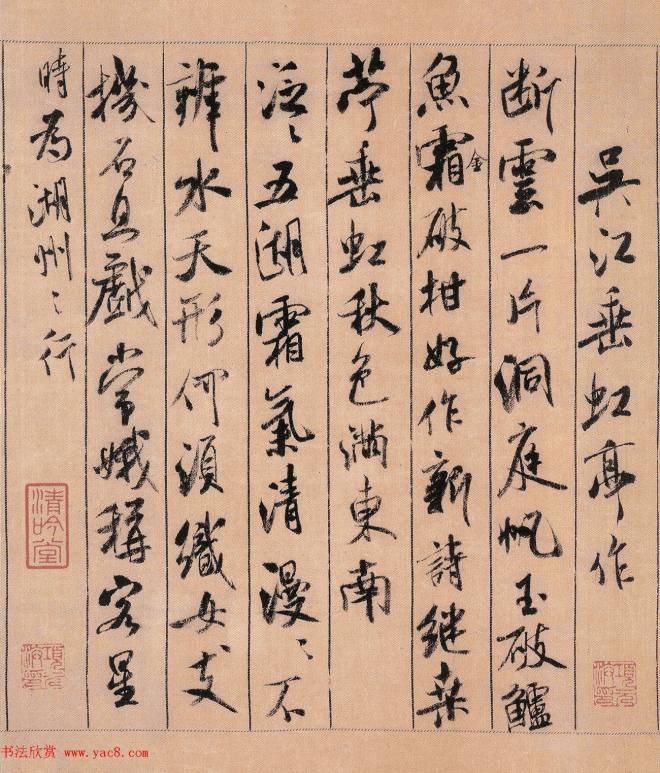 吳江垂虹亭作
断雲一片洞庭帆玉破鱸
魚霜金破柑好作新詩継桒
苧垂虹秋色満東南
泛〻五湖霜氣清漫〻不
辨水天形何須織女支
機石且戲常娥稱客星
時為湖州之行
清吟堂
书法欣赏 www.yac8.com